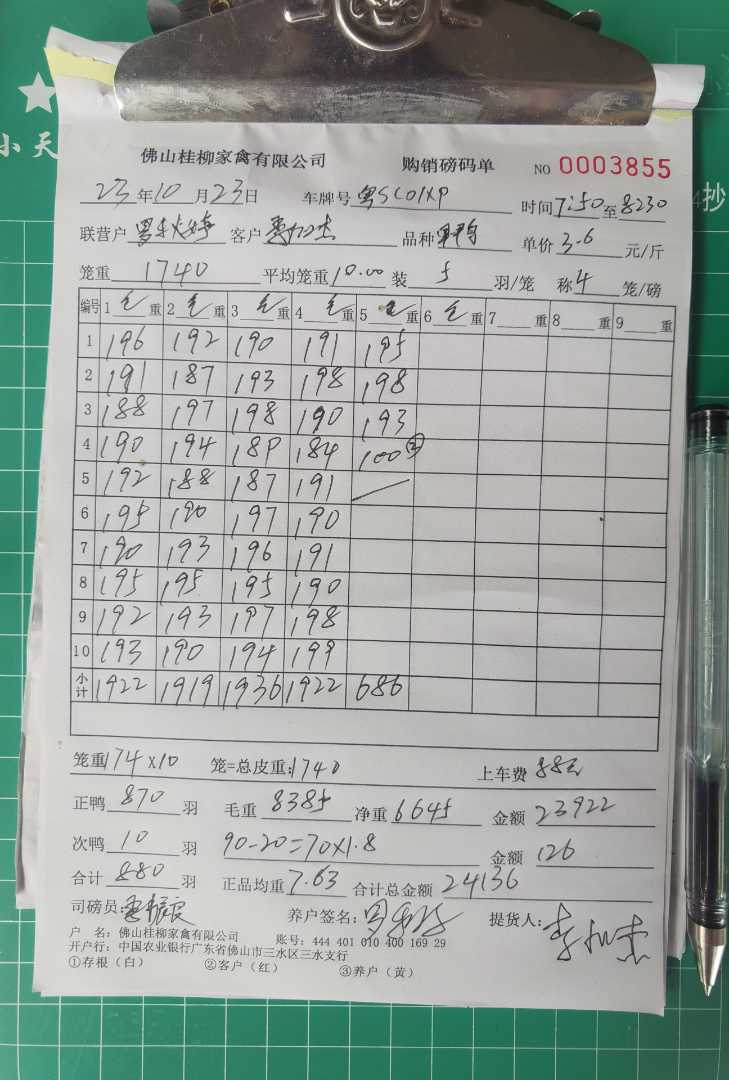 小天
4抄
佛山桂柳家禽有限公司 购销磅码单 NO 0003855
23年10月23日 车牌号 时间7:50至8230
联营户 客户 品种 单价3.6元/斤
笼重1740 平均笼重10.00装5羽/笼 称4笼/磅
编号 1毛重 2毛重 3毛重 4毛重 5毛重 6毛重 7重 8重 9重
1 196 192 190 191 195
2 191 187 193 198 198
3 188 197 198 190 193
4 190 194 189 184 100②
5 192 188 187 191
6 195 190 197 190
7 190 193 196 191
8 195 195 195 190
9 192 193 197 198
10 193 190 194 199
小计 1922 1919 1936 1922 686
笼重174×10 笼=总皮重:1740 上车费 88元
正鸭870羽 毛重8385 净重6645 金额23922
次鸭10羽 90-20=70×1.8 金额126
合计880羽 正品均重7.63 合计总金额24136
司磅员: 养户签名: 提货人:
户 名:佛山桂柳家禽有限公司 账号:444 401 010 400 169 29
开户行:中国农业银行广东省佛山市三水区三水支行
①存根(白) ②客户(红) ③养户(黄)